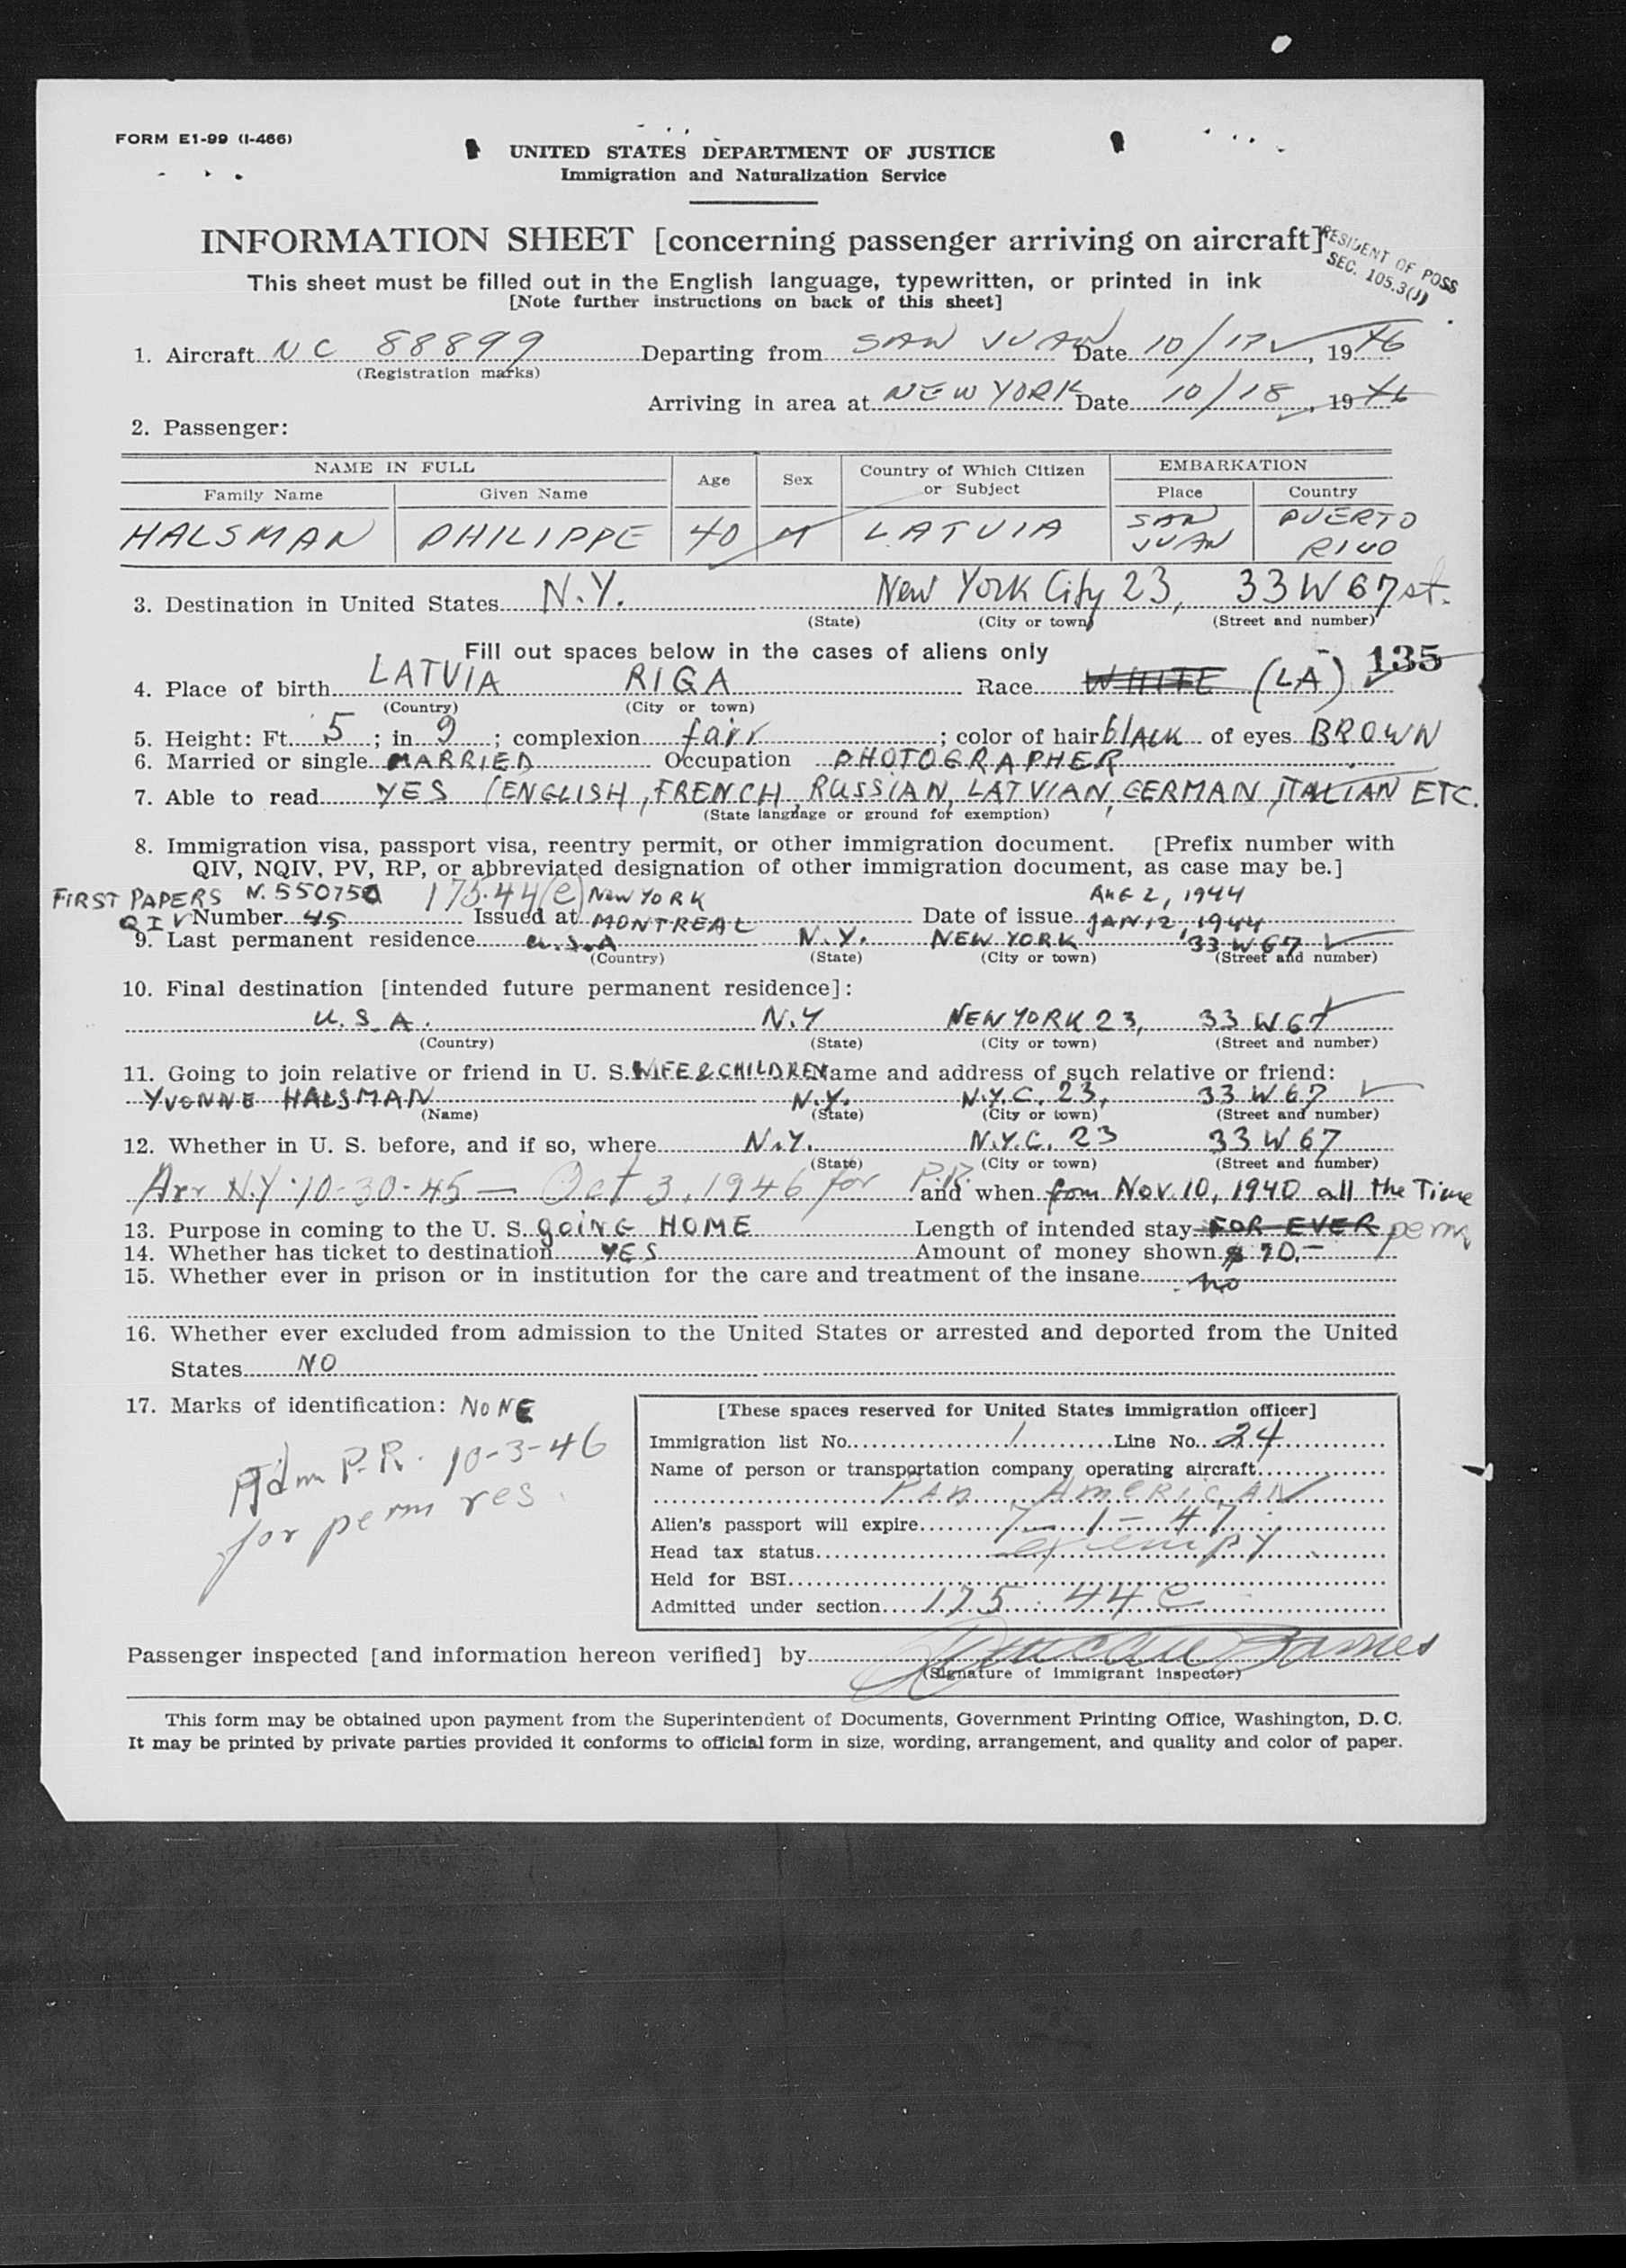 FORM E1-99 (I-466)
UNITED STATES DEPARTMENT OF JUSTICE
Immigration and Naturalization Service
INFORMATION SHEET [concerning passenger arriving on aircraft]
RESIDENT OF POSS
SEC. 105.3(J)
This sheet must be filled out in the English language, typewritten, or printed in ink
[Note further instructions on back of this sheet]
1. Aircraft NC 88899 Departing from SAN JUAN Date 10/17, 1946
(Registration marks)
Arriving in area at NEW YORK Date 10/18, 1946
2. Passenger:
NAME IN FULL Age Sex Country of Which Citizen or Subject EMBARKATION
Family Name Given Name Place Country
HALSMAN PHILIPPE 40 M LATVIA SAN JUAN PUERTO RICO
3. Destination in United States N.Y. New York City 23, 33 W 67 st.
(State) (City or town) (Street and number)
Fill out spaces below in the cases of aliens only
135
4. Place of birth LATVIA RIGA Race WHITE (LA)
(Country) (City or town)
5. Height: Ft. 5; in 9; complexion fair; color of hair blACK of eyes BROWN
6. Married or single MARRIED Occupation PHOTOGRAPHER
7. Able to read YES (ENGLISH, FRENCH, RUSSIAN, LATVIAN, GERMAN, ITALIAN ETC.
(State language or ground for exemption)
8. Immigration visa, passport visa, reentry permit, or other immigration document. [Prefix number with
QIV, NQIV, PV, RP, or abbreviated designation of other immigration document, as case may be.]
FIRST PAPERS N. 550750 175.44(e) New YORK AUG 2, 1944
QIV Number 45 Issued at MONTREAL Date of issue JAN 12, 1944
9. Last permanent residence U.S.A N.Y. NEW YORK 33 W 67
(Country) (State) (City or town) (Street and number)
10. Final destination [intended future permanent residence]:
U.S.A. N.Y NEW YORK 23, 33 W 67
(Country) (State) (City or town) (Street and number)
11. Going to join relative or friend in U. S. WIFE & CHILDREN Name and address of such relative or friend:
YVONNE HALSMAN N.Y. N.Y.C. 23, 33 W 67
(Name) (State) (City or town) (Street and number)
12. Whether in U. S. before, and if so, where N.Y. N.Y.C. 23 33 W 67
(State) (City or town) (Street and number)
Arr N.Y. 10-30-45 — Oct 3, 1946 for P.R. and when from Nov. 10, 1940 all the Time
13. Purpose in coming to the U. S. goiNG HOME Length of intended stay FOR EVER perm
14. Whether has ticket to destination YES Amount of money shown $ 70.-
15. Whether ever in prison or in institution for the care and treatment of the insane no
16. Whether ever excluded from admission to the United States or arrested and deported from the United
States NO
17. Marks of identification: NONE
Adm P.R. 10-3-46
for perm res.
[These spaces reserved for United States immigration officer]
Immigration list No. 1 Line No. 24
Name of person or transportation company operating aircraft
PAN AMERICAN
Alien's passport will expire 7-1-47
Head tax status exempt
Held for BSI
Admitted under section 175.44e
Passenger inspected [and information hereon verified] by
(Signature of immigrant inspector)
This form may be obtained upon payment from the Superintendent of Documents, Government Printing Office, Washington, D. C.
It may be printed by private parties provided it conforms to official form in size, wording, arrangement, and quality and color of paper.